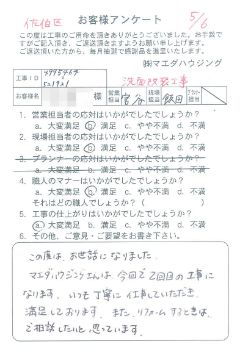 佐伯区
お客様アンケート
5/6
この度は工事のご用命を頂きありがとうございました。お手数で
すがご記入頂き、ご返送頂きますようお願い申し上げます。
ご返送頂いた方から、毎月抽選で感謝品を進呈いたします。
㈱マエダハウジング
工事ID
洗面改装工事
お客様名
様
営業担当
現場担当
飯田
1. 営業担当者の応対はいかがでしたでしょうか?
a. 大変満足 b. 満足 c. やや不満 d. 不満
2. 現場担当者の応対はいかがでしたでしょうか?
a. 大変満足 b. 満足 c. やや不満 d. 不満
3. プランナーの応対はいかがでしたでしょうか?
a. 大変満足 b. 満足 c. やや不満 d. 不満
4. 職人のマナーはいかがでしたでしょうか?
a. 大変満足 b. 満足 c. やや不満 d. 不満
それはどの職でしょうか? (
5. 工事の仕上がりはいかがでしたでしょうか?
a. 大変満足 b. 満足 c. やや不満 d. 不満
6. その他、ご意見・ご要望をお書き下さい。
この度は、お世話になりました。
マエダハウジングさんは今回で2回目の工事に
なります。いつも丁寧に仕事していただき、
満足しております。また、リフォームするときは、
ご相談したいと思っています。